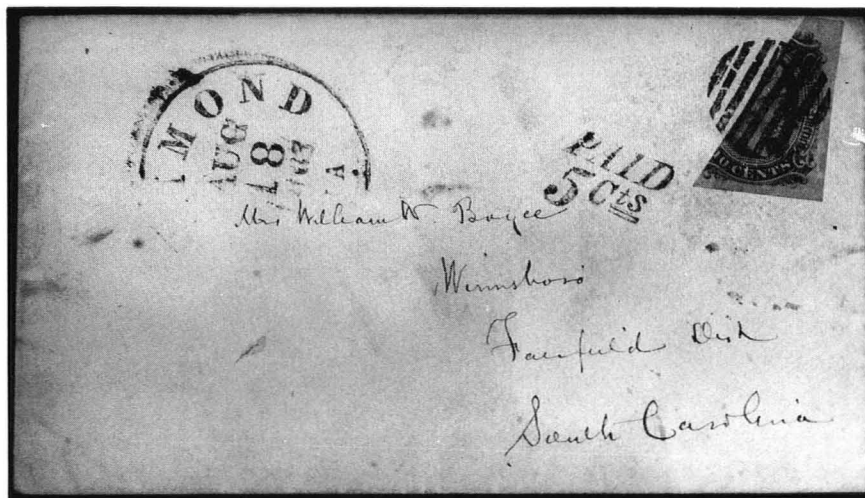 MOND
AUG
18
1863
A
PAID
5 Cts
10 CENTS
Mrs William W. Boyce
Winnsboro
Fairfield Dist
South Carolina